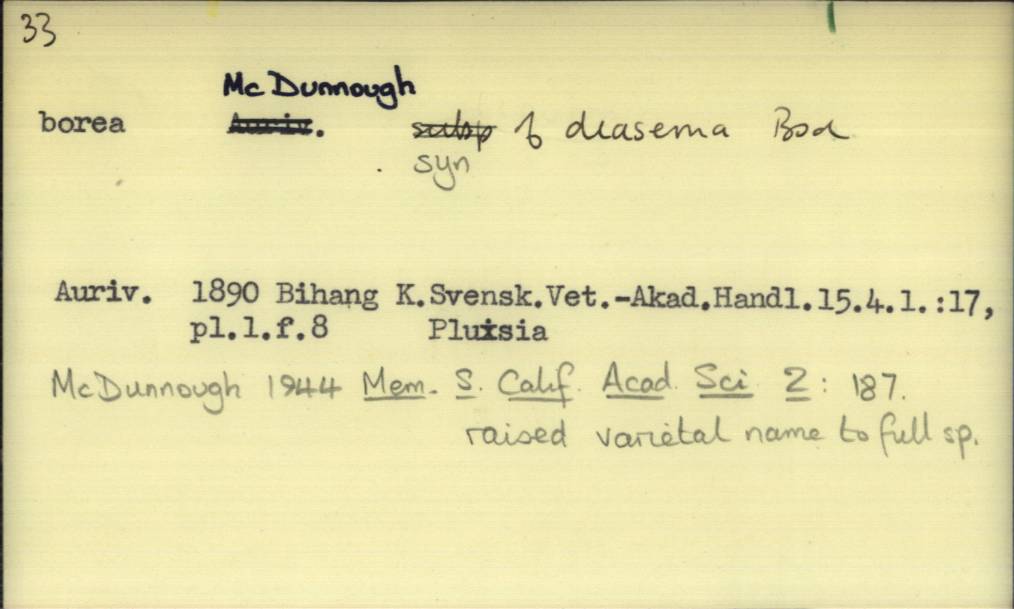 33
McDunnough
borea Auriv. subsp of diasema Bsd
syn
Auriv. 1890 Bihang K.Svensk.Vet.-Akad.Handl.15.4.1.:17,
pl.1.f.8 Plusia
McDunnough 1944 Mem. S. Calif. Acad. Sci 2: 187.
raised varietal name to full sp.